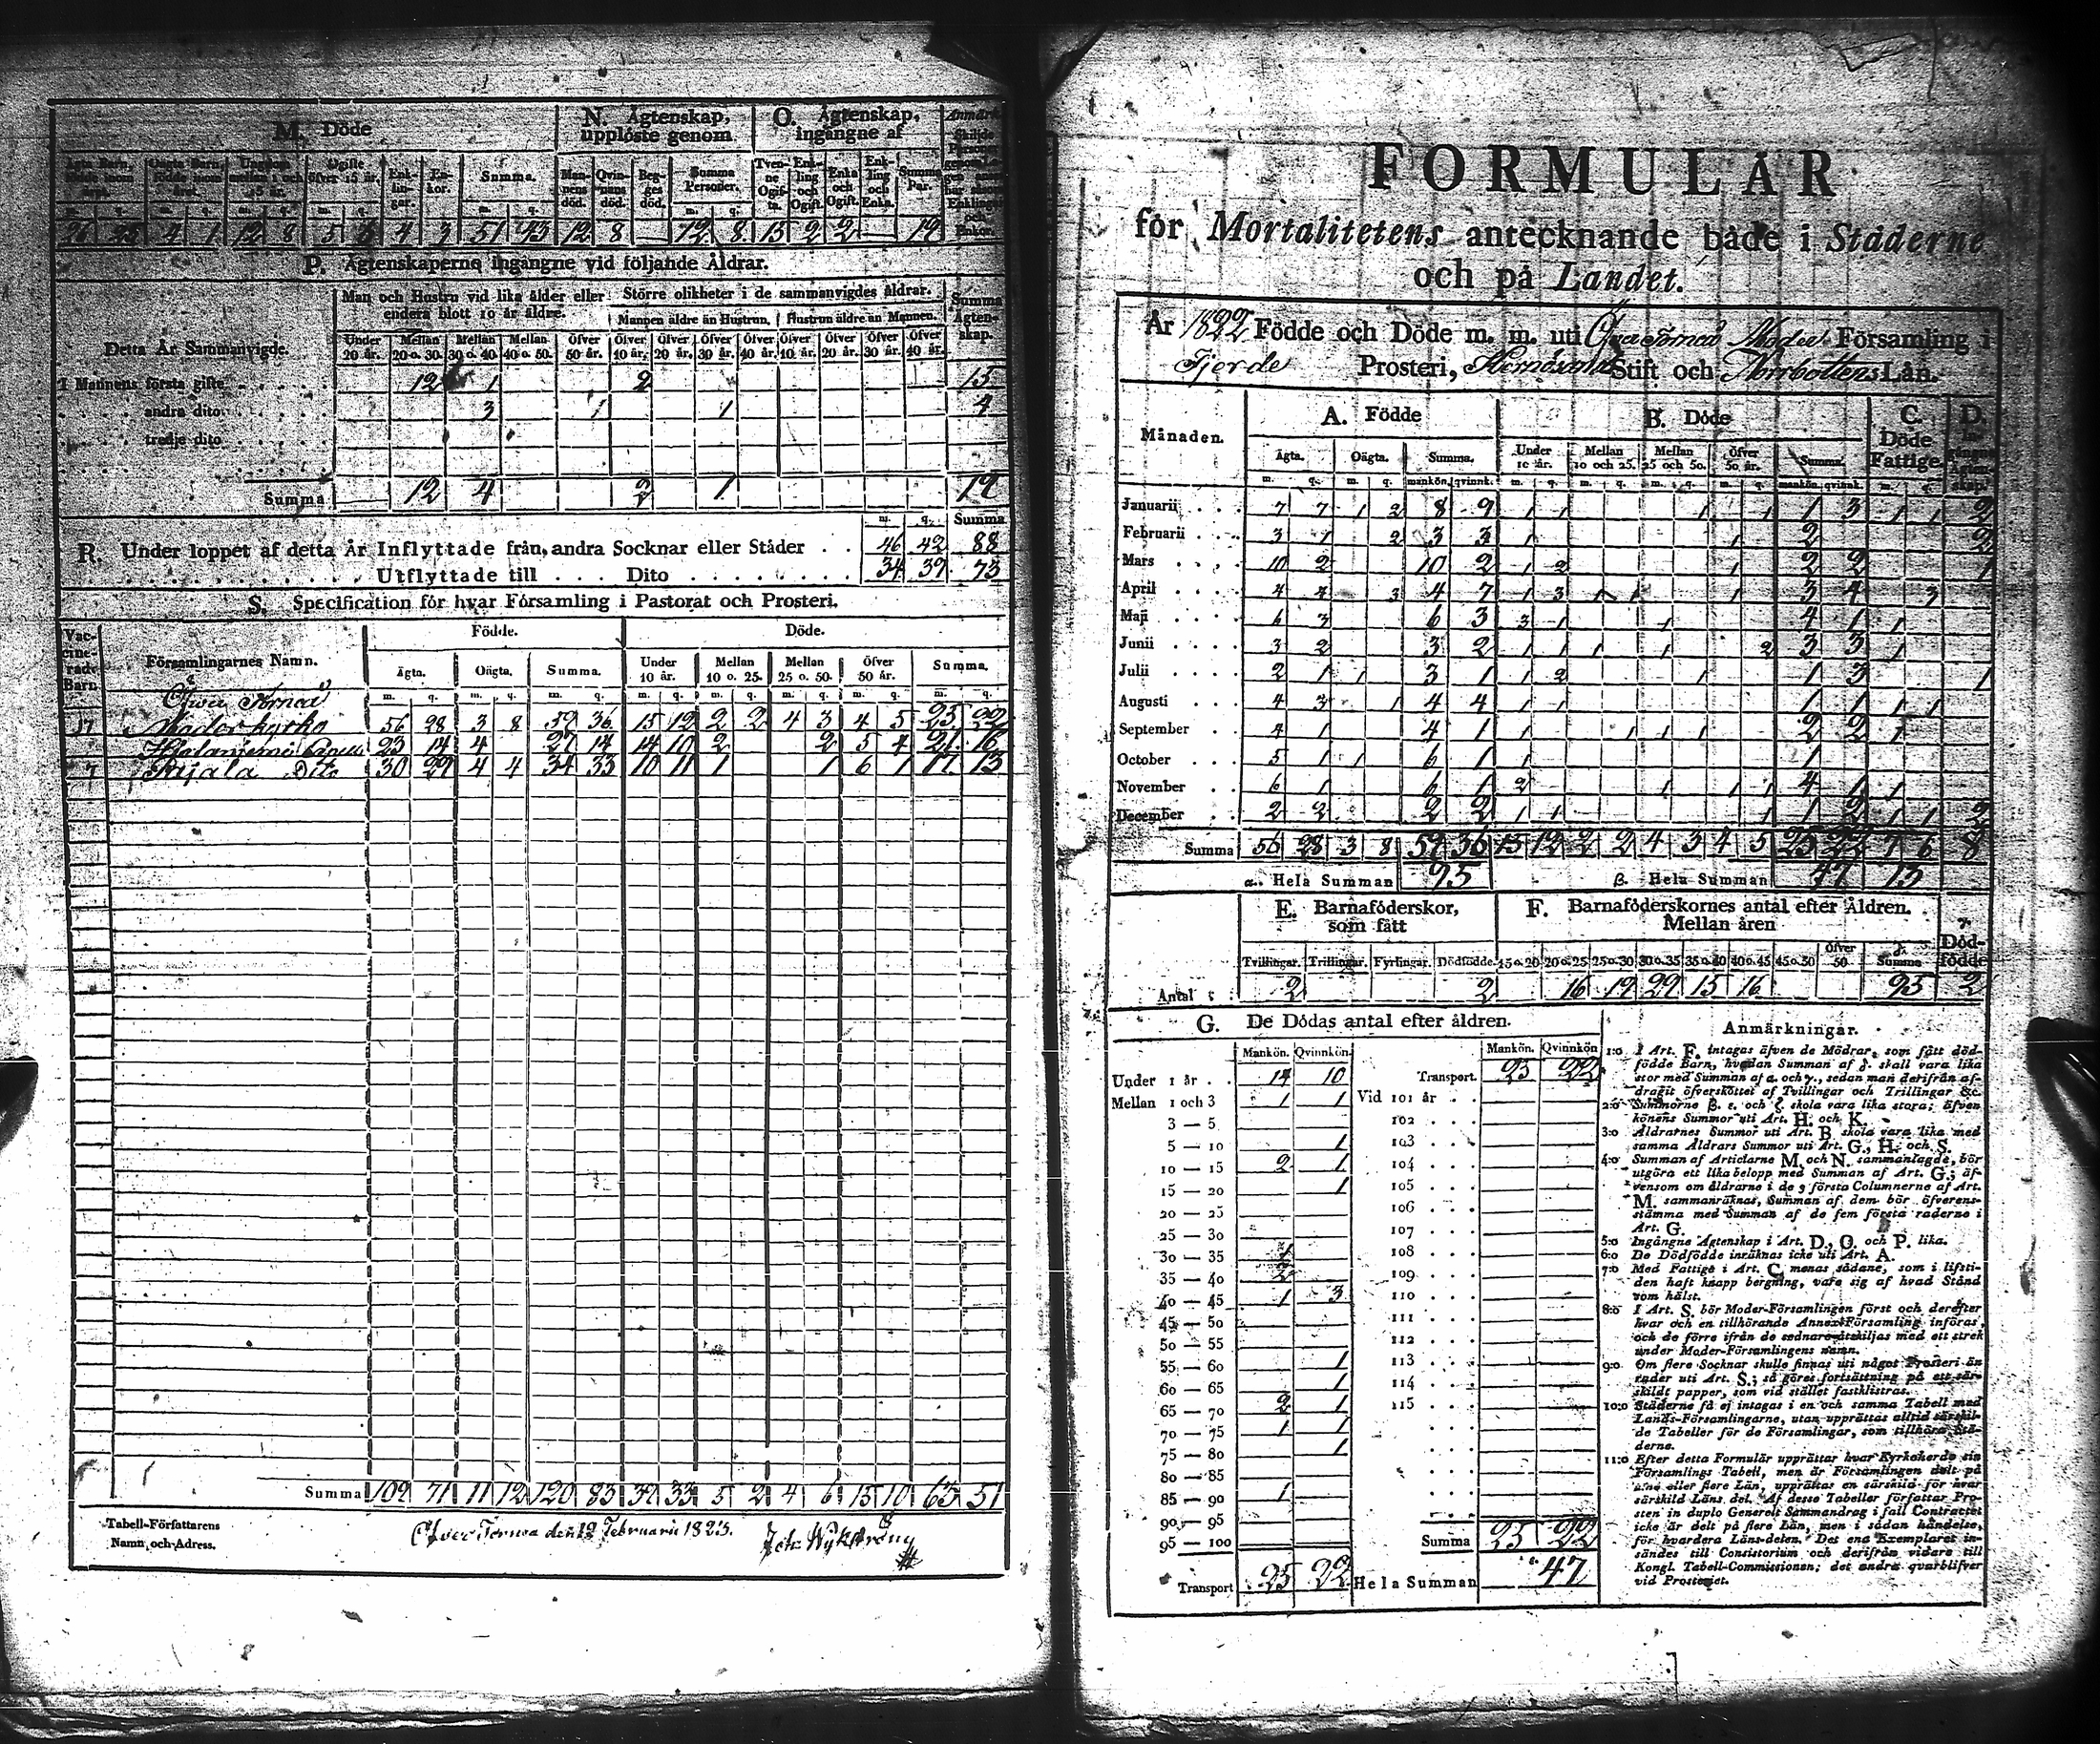 M. Döde
N. Ägtenskap, upplöste genom
O. Ägtenskap, ingångne af
Anmärk.
Ägta Barn, födde inom året. Oägta Barn, födde inom året. Ungdom mellan 1 och 15 år. Ogifte öfver 15 år. Enk-lin-gar. En-kor. Summa. Man-nens död. Qvin-nans död. Beg-ges död. Summa Personer. Tven-ne Ogif-ta. Enk-ling och Ogift. Enka och Ogift. Enk-ling och Enka. Summa Par.
m. q. m. q. m. q. m. q. m. q. m. q.
26 25 4 1 12 8 5 6 4 3 51 43 12 8 — 12 8 15 2 2 — 19
P. Ägtenskaperne ingångne vid följande Åldrar.
Detta År Sammanvigde.
Man och Hustru vid lika ålder eller endera blott 10 år äldre.
Större olikheter i de sammanvigdes åldrar.
Mannen äldre än Hustrun. Hustrun äldre än Mannen.
Summa Ägten-skap.
Under 20 år. Mellan 20 o. 30. Mellan 30 o. 40. Mellan 40 o. 50. Öfver 50 år. Öfver 10 år. Öfver 20 år. Öfver 30 år. Öfver 40 år. Öfver 10 år. Öfver 20 år. Öfver 30 år. Öfver 40 år.
I Mannens första gifte 12 1 2 15
andra dito 3 1 4
tredje dito
Summa 12 4 2 1 19
m. q. Summa
R. Under loppet af detta År Inflyttade från andra Socknar eller Städer . . 46 42 88
Utflyttade till . . . . Dito . . . . 34 39 73
S. Specification för hvar Församling i Pastorat och Prosteri.
Vac-cine-rade Barn.
Församlingarnes Namn.
Födde. Döde.
Ägta. Oägta. Summa. Under 10 år. Mellan 10 o. 25. Mellan 25 o. 50. Öfver 50 år. Summa.
m. q. m. q. m. q. m. q. m. q. m. q. m. q. m. q.
Öfver Torneå
17 Moderkyrka 56 28 3 8 59 36 15 12 2 2 4 3 4 5 25 22
Hietaniemi Capell 23 14 4 27 14 14 10 2 2 5 4 21 16
7 Pajala Dito 30 29 4 4 34 33 10 11 1 1 6 1 17 13
Summa 109 71 11 12 120 83 39 33 5 2 4 6 15 10 63 51
Tabell-Författarens Namn och Adress.
Öfver Torneå den 19 Februarii 1823. Joh. Wykström
FORMULÄR
för Mortalitetens antecknande både i Städerne
och på Landet.
År 1822 Födde och Döde m. m. uti Öfver Torneå Moder Församling i
Fjerde Prosteri, Hernösands Stift och Norrbottens Län.
Månaden.
A. Födde
B. Döde
C. Döde Fattige.
D. Ingångne Ägten-skap.
Ägta. Oägta. Summa. Under 10 år. Mellan 10 och 25. Mellan 25 och 50. Öfver 50 år. Summa.
m. q. m. q. mankön. qvinnk. m. q. m. q. m. q. m. q. mankön. qvinnk. m. q.
Januarii 7 7 1 2 8 9 1 1 1 1 1 3 1 1 2
Februarii 3 1 2 3 3 1 1 2 2
Mars 10 2 10 2 1 2 1 2 2 1
April 4 4 3 4 7 1 3 1 1 1 3 4 3
Maji 6 3 6 3 3 1 1 4 1 1
Junii 3 2 3 2 1 1 1 1 2 3 3 1
Julii 2 1 1 3 1 1 2 1 1 3 1
Augusti 4 3 1 4 4 1 1 1 1 1 1
September 4 1 4 1 1 1 1 1 2 2 1
October 5 1 1 6 1 1 1
November 6 1 6 1 2 1 1 1 4 1 1
December 2 2 2 2 1 1 1 1 2 1 1 2
Summa 56 28 3 8 59 36 15 12 2 2 4 3 4 5 25 22 7 6 8
α. Hela Summan 95 β. Hela Summan 47 13
E. Barnaföderskor, som fått
F. Barnaföderskornes antal efter Åldren. Mellan åren
γ. Död-födde
Tvillingar. Trillingar. Fyrlingar. Dödfödde. 15 o. 20 20 o. 25 25 o. 30 30 o. 35 35 o. 40 40 o. 45 45 o. 50 Öfver 50 δ. Summa
Antal 2 2 16 19 29 15 16 95 2
G. De Dödas antal efter åldren.
Mankön. Qvinnkön. Mankön. Qvinnkön
Under 1 år . . 14 10
Mellan 1 och 3 1 1
3 — 5
5 — 10 1
10 — 15 2 1
15 — 20 1
20 — 25
25 — 30
30 — 35 1
35 — 40 2
40 — 45 1 3
45 — 50
50 — 55
55 — 60 1
60 — 65 1
65 — 70 2 1
70 — 75 1 1
75 — 80 1
80 — 85
85 — 90 1
90 — 95
95 — 100
Transport 25 22
Transport. 25 22
Vid 101 år . .
102 . . .
103 . . .
104 . . .
105 . . .
106 . . .
107 . . .
108 . . .
109 . . .
110 . . .
111 . . .
112 . . .
113 . . .
114 . . .
115 . . .
Summa 25 22
Hela Summan 47
Anmärkningar.
1:o I Art. F. intagas äfven de Mödrar, som fått död-
födde Barn, hvadan Summan af δ. skall vara lika
stor med Summan af α. och γ., sedan man derifrån af-
dragit öfverskottet af Tvillingar och Trillingar &c.
2:o Summorne β. ε. och ζ. skola vara lika stora; äfven
könens Summor uti Art. H. och K.
3:o Åldrarnes Summor uti Art. B. skola vara lika med
samma Åldrars Summor uti Art. G., H. och S.
4:o Summan af Articlarne M. och N. sammanlagde, bör
utgöra ett lika belopp med Summan af Art. G.; äf-
vensom om åldrarne i de 3 första Columnerne af Art.
M. sammanräknas, Summan af dem bör öfverens-
stämma med Summan af de fem första raderne i
Art. G.
5:o Ingångne Ägtenskap i Art. D., O. och P. lika.
6:o De Dödfödde inräknas icke uti Art. A.
7:o Med Fattige i Art. C. menas sådane, som i lifsti-
den haft knapp bergning, vare sig af hvad Stånd
som hälst.
8:o I Art. S. bör Moder-Församlingen först och derefter
hvar och en tillhörande Annex-Församling införas,
och de förre ifrån de sednare åtskiljas med ett strek
under Moder-Församlingens namn.
9:o Om flere Socknar skulle finnas uti något Prosteri än
rader uti Art. S.; så göres fortsättning på ett sär-
skildt papper, som vid stället fastklistras.
10:o Städerne få ej intagas i en och samma Tabell med
Lands-Församlingarne, utan upprättas alltid särskil-
de Tabeller för de Församlingar, som tillhöra Stä-
derne.
11:o Efter detta Formulär upprättar hvar Kyrkoherde sin
Församlings Tabell, men är Församlingen delt på
två eller flere Län, upprättas en särskild för hvar
särskild Läns del. Af desse Tabeller författar Pro-
sten in duplo Generelt Sammandrag i fall Contractet
icke är delt på flere Län, men i sådan händelse,
för hvardera Läns-delen. Det ena Exemplaret in-
sändes till Consistorium och derifrån vidare till
Kongl. Tabell-Commissionen; det andra qvarblifver
vid Prosteriet.